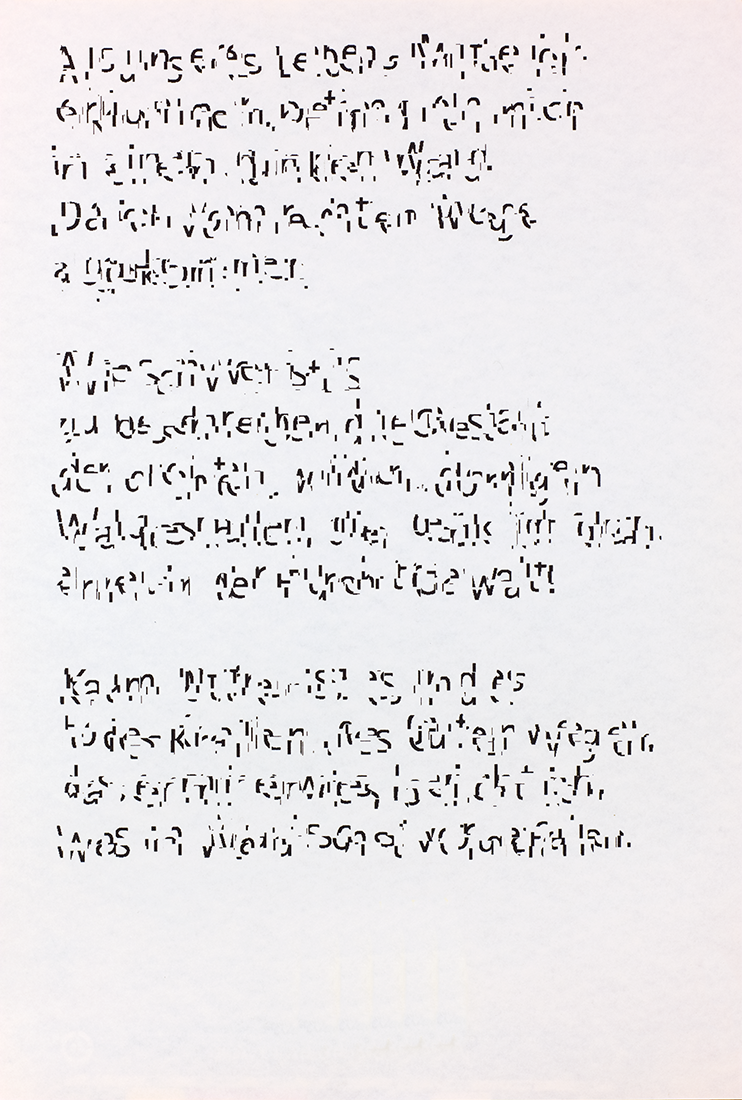 Als unseres Lebens Mitte ich
erklommen, befand ich mich
in einem dunklen Wald.
Da ich vom rechten Wege
abgekommen.
Wie schwer ist's
zu beschreiben, die Gestalt
der dichten, wilden, dornigen
Waldeshallen, die, denk ich dran,
erneuern der Furcht Gewalt!
Kaum bittrer ist es in des
Todes Krallen, des Guten wegen,
das er mir erwies, bericht ich,
Was im Wald sonst vorgefallen.